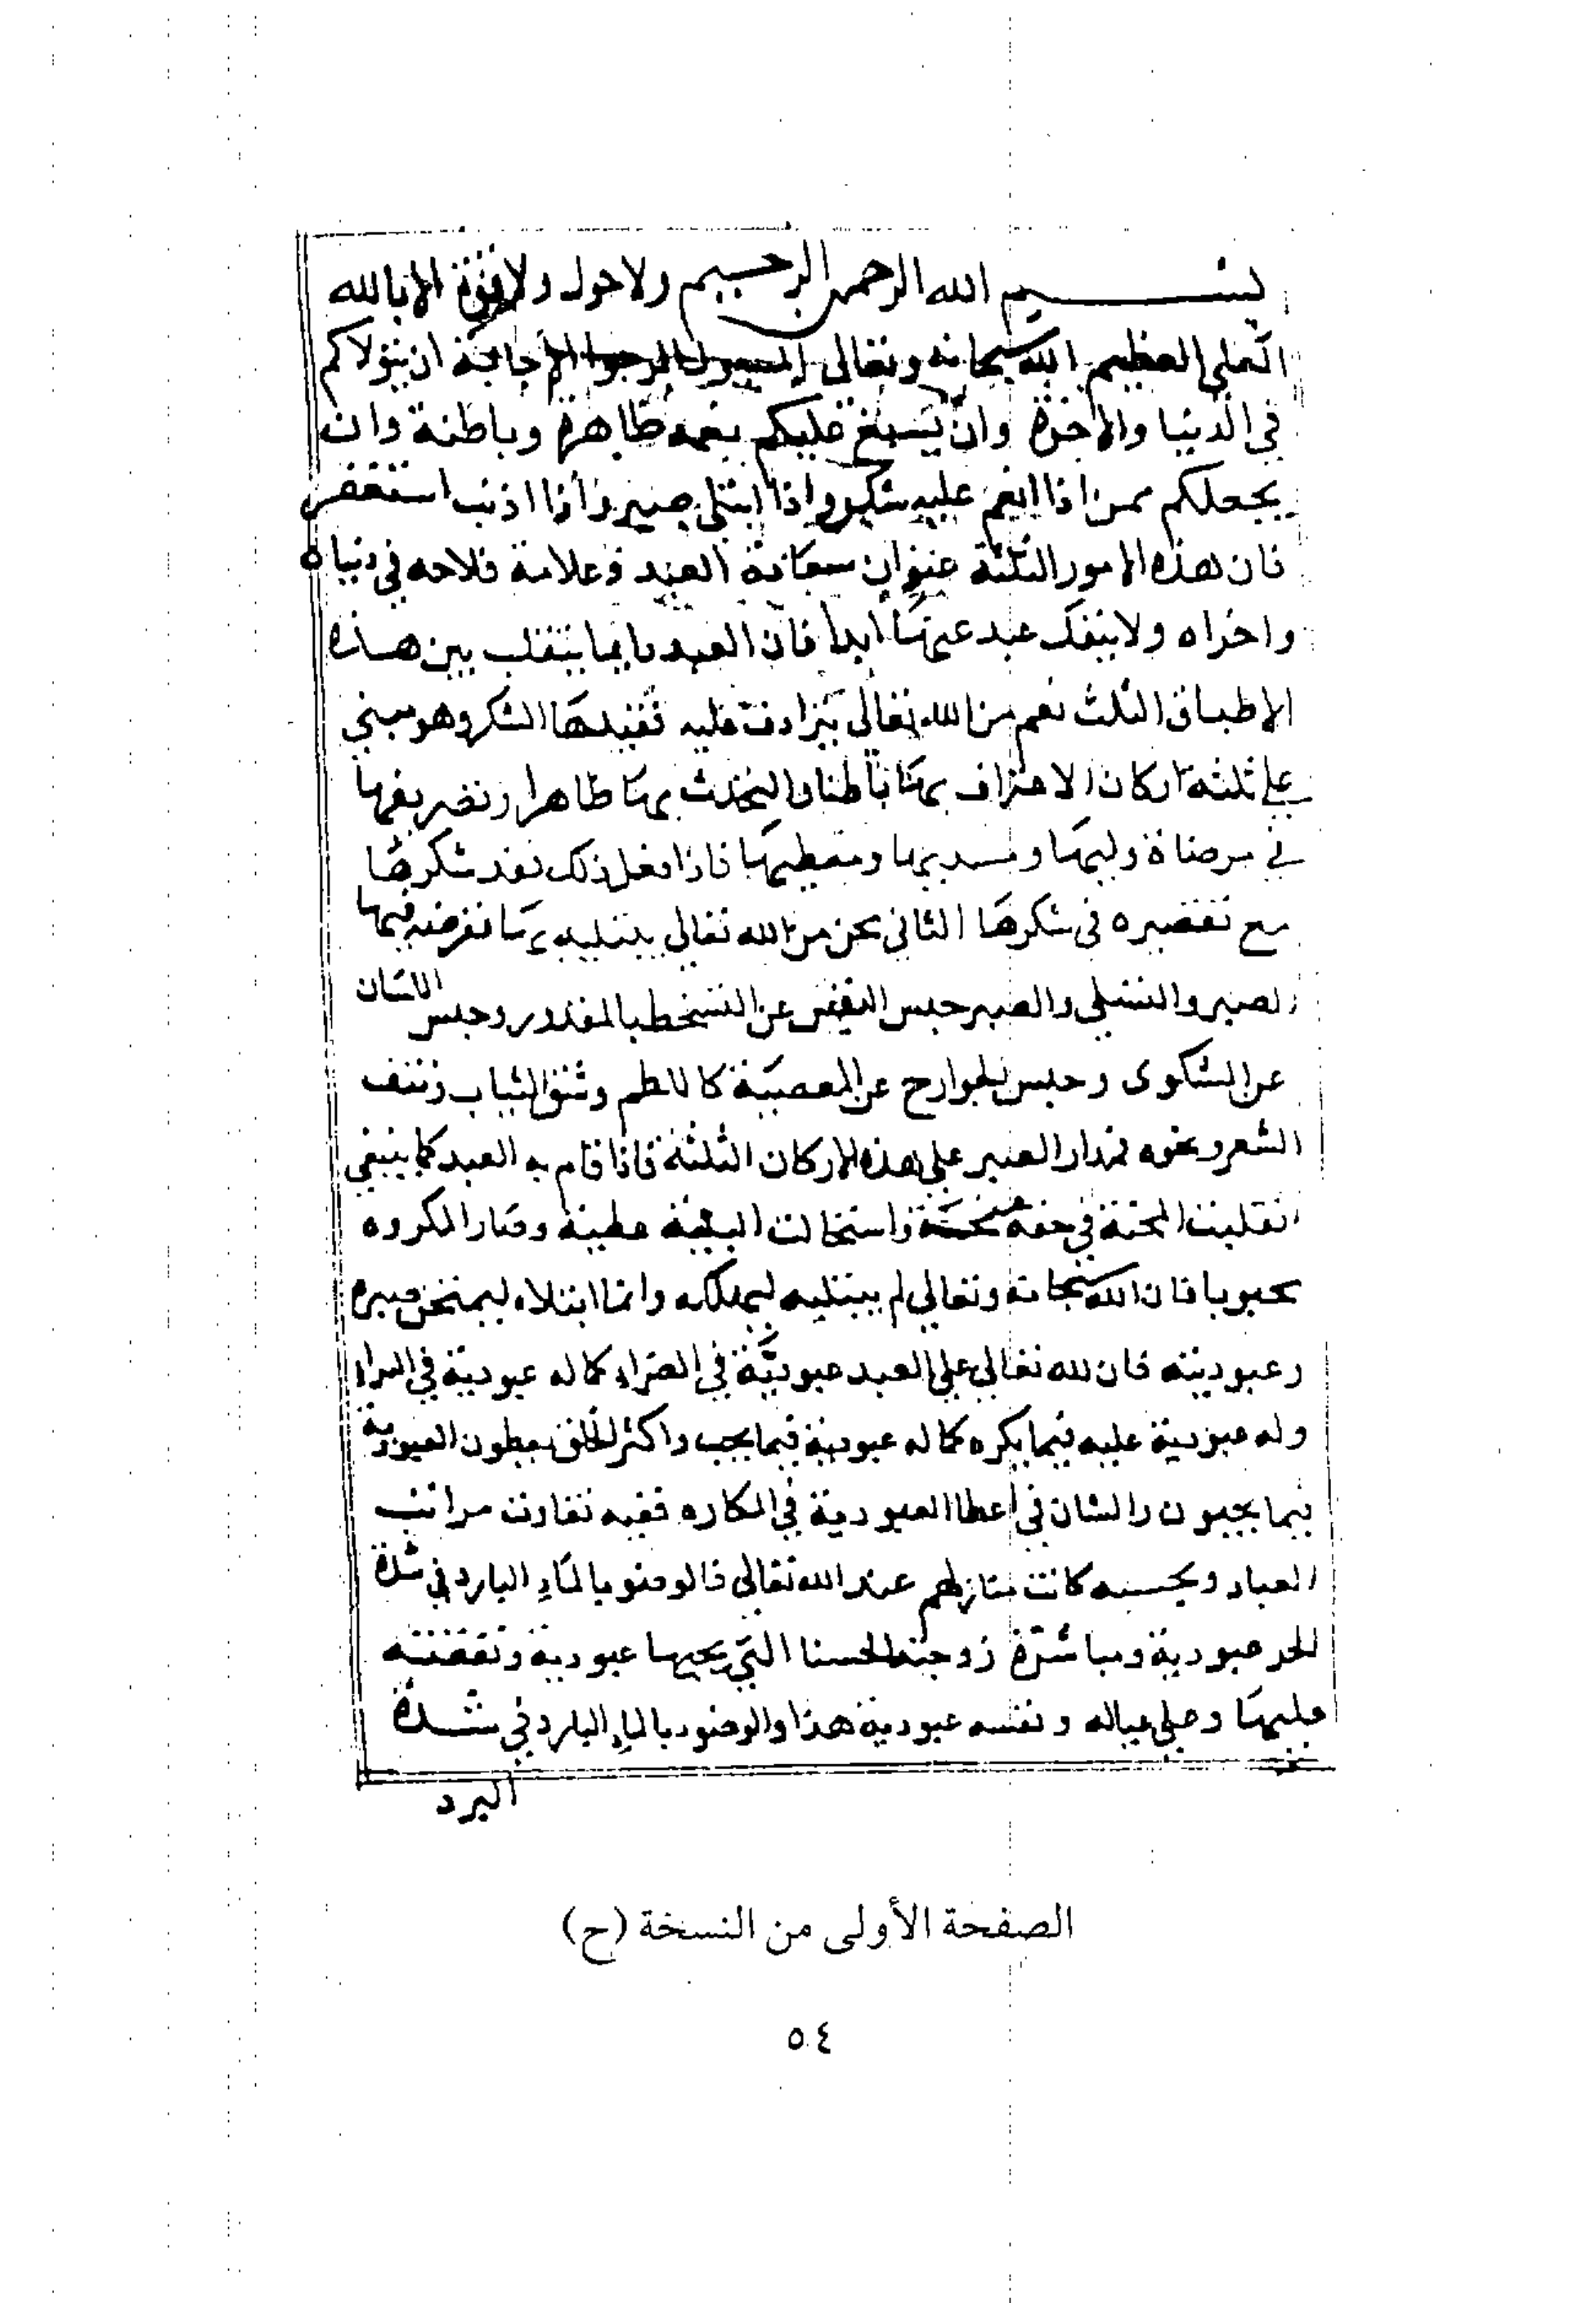 بسم الله الرحمن الرحيم ولا حول ولا قوة الا بالله
العلي العظيم الله سبحانه وتعالى المسول المرجوا الإجابة ان يتولاكم
في الدنيا والاخرة وان يسبغ عليكم نعمه ظاهرة وباطنة وان
يجعلكم ممن اذا انعم عليه شكر واذا ابتلي صبر واذا اذنب استغفر
فان هذه الامور الثلثة عنوان سعادة العبد وعلامة فلاحه في دنياه
واخراه ولا ينفك عبد عنها ابدا فان العبد دايما يتقلب بين هذه
الاطباق الثلث نعم من الله تعالى تترادف عليه تقيدها الشكر وهو مبني
على ثلثة اركان الاعتراف بها باطنا والتحدث بها ظاهرا وتصريفها
في مرضاة وليها ومسديها ومعطيها فاذا فعل ذلك فقد شكرها
مع تقصيره في شكرها الثاني محن من الله تعالى يبتليه بها ففرضه فيها
الصبر والتسلي والصبر حبس النفس عن التسخط بالمقدور وحبس اللسان
عن الشكوى وحبس الجوارح عن المعصية كاللطم وشق الثياب ونتف
الشعر ونحوه فمدار الصبر على هذه الاركان الثلثة فاذا قام به العبد كما ينبغي
انقلبت المحنة في حقه منحة واستحالت البلية عطية وصار المكروه
محبوبا فان الله سبحانه وتعالى لم يبتليه ليهلكه وانما ابتلاه ليمتحن صبره
وعبوديته فان لله تعالى على العبد عبودية في الضراء كما له عبودية في السراء
وله عبودية عليه فيما يكره كما له عبودية فيما يحب واكثر الخلق يعطون العبودية
فيما يحبون والشان في اعطا العبودية في المكاره ففيه تفاوت مراتب
العباد وبحسبه كانت منازلهم عند الله تعالى فالوضو بالماء البارد في شدة
الحر عبودية ومباشرة زوجته الحسنا التي يحبها عبودية ونفقته
عليها وعلى عياله ونفسه عبودية هذا والوضوء بالماء البارد في شدة
البرد
الصفحة الأولى من النسخة (ح)
٥٤